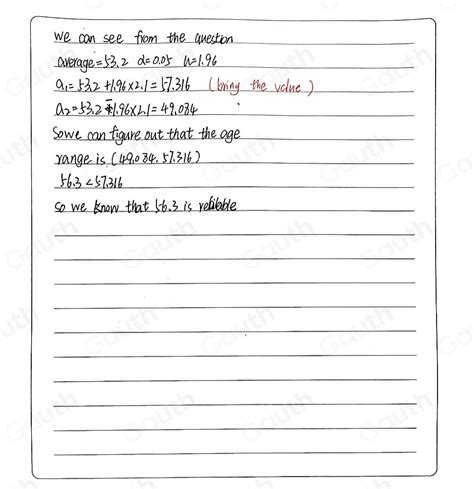 we can see from the question
average=53.2 α=0.05 u=1.96
a₁=53.2+1.96×2.1=57.316 (bring the value)
a₂=53.2-1.96×2.1=49.084
So we can figure out that the age
range is (49.084, 57.316)
56.3<57.316
so we know that 56.3 is reliable
Gauth